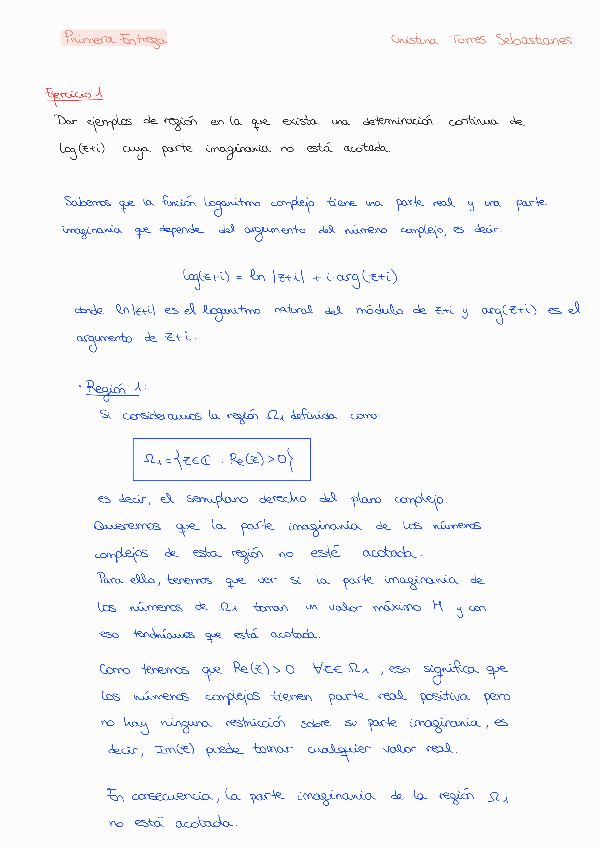 Primera Entrega
Cristina Torres Sebastianes
Ejercicio 1
Dar ejemplos de región en la que exista una determinación continua de
log(z+i) cuya parte imaginaria no está acotada.
Sabemos que la función logaritmo complejo tiene una parte real y una parte
imaginaria que depende del argumento del número complejo, es decir:
log(z+i) = ln |z+i| + i·arg(z+i)
donde ln|z+i| es el logaritmo natural del módulo de z+i y arg(z+i) es el
argumento de z+i.
· Región 1:
Si consideramos la región Ω1 definida como:
Ω1 = {z∈ℂ : Re(z)>0}
es decir, el semiplano derecho del plano complejo.
Queremos que la parte imaginaria de los números
complejos de esta región no esté acotada.
Para ello, tenemos que ver si la parte imaginaria de
los números de Ω1 toman un valor máximo M y con
eso tendríamos que está acotada.
Como tenemos que Re(z)>0 ∀z∈Ω1, eso significa que
los números complejos tienen parte real positiva pero
no hay ninguna restricción sobre su parte imaginaria, es
decir, Im(z) puede tomar cualquier valor real.
En consecuencia, la parte imaginaria de la región Ω1
no está acotada.